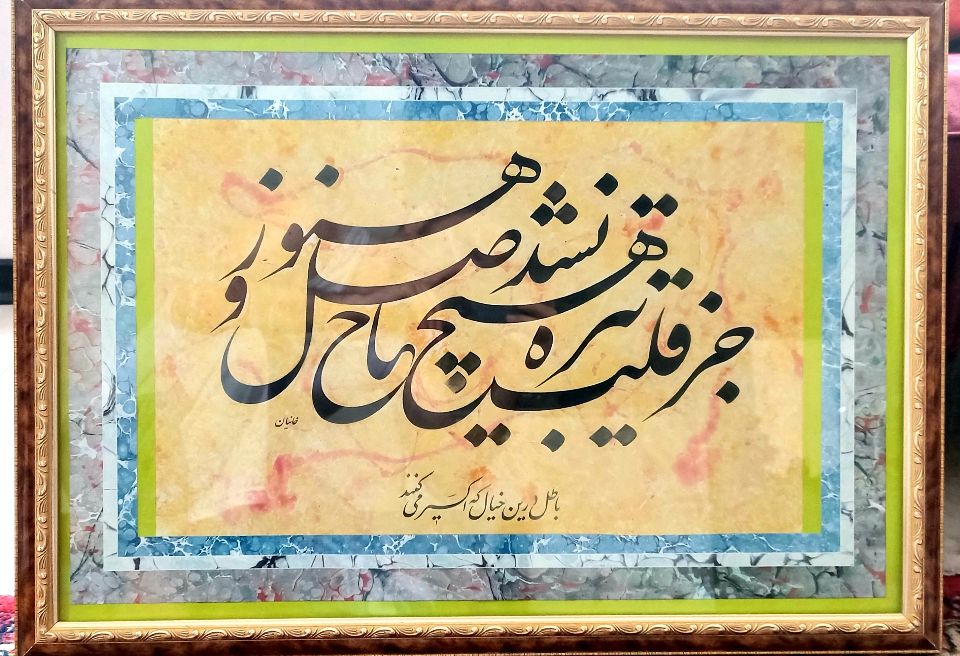 جز قلب تیره هیچ نشد حاصل و هنوز
خانیان
باطل درین خیال که اکسیر می کنند